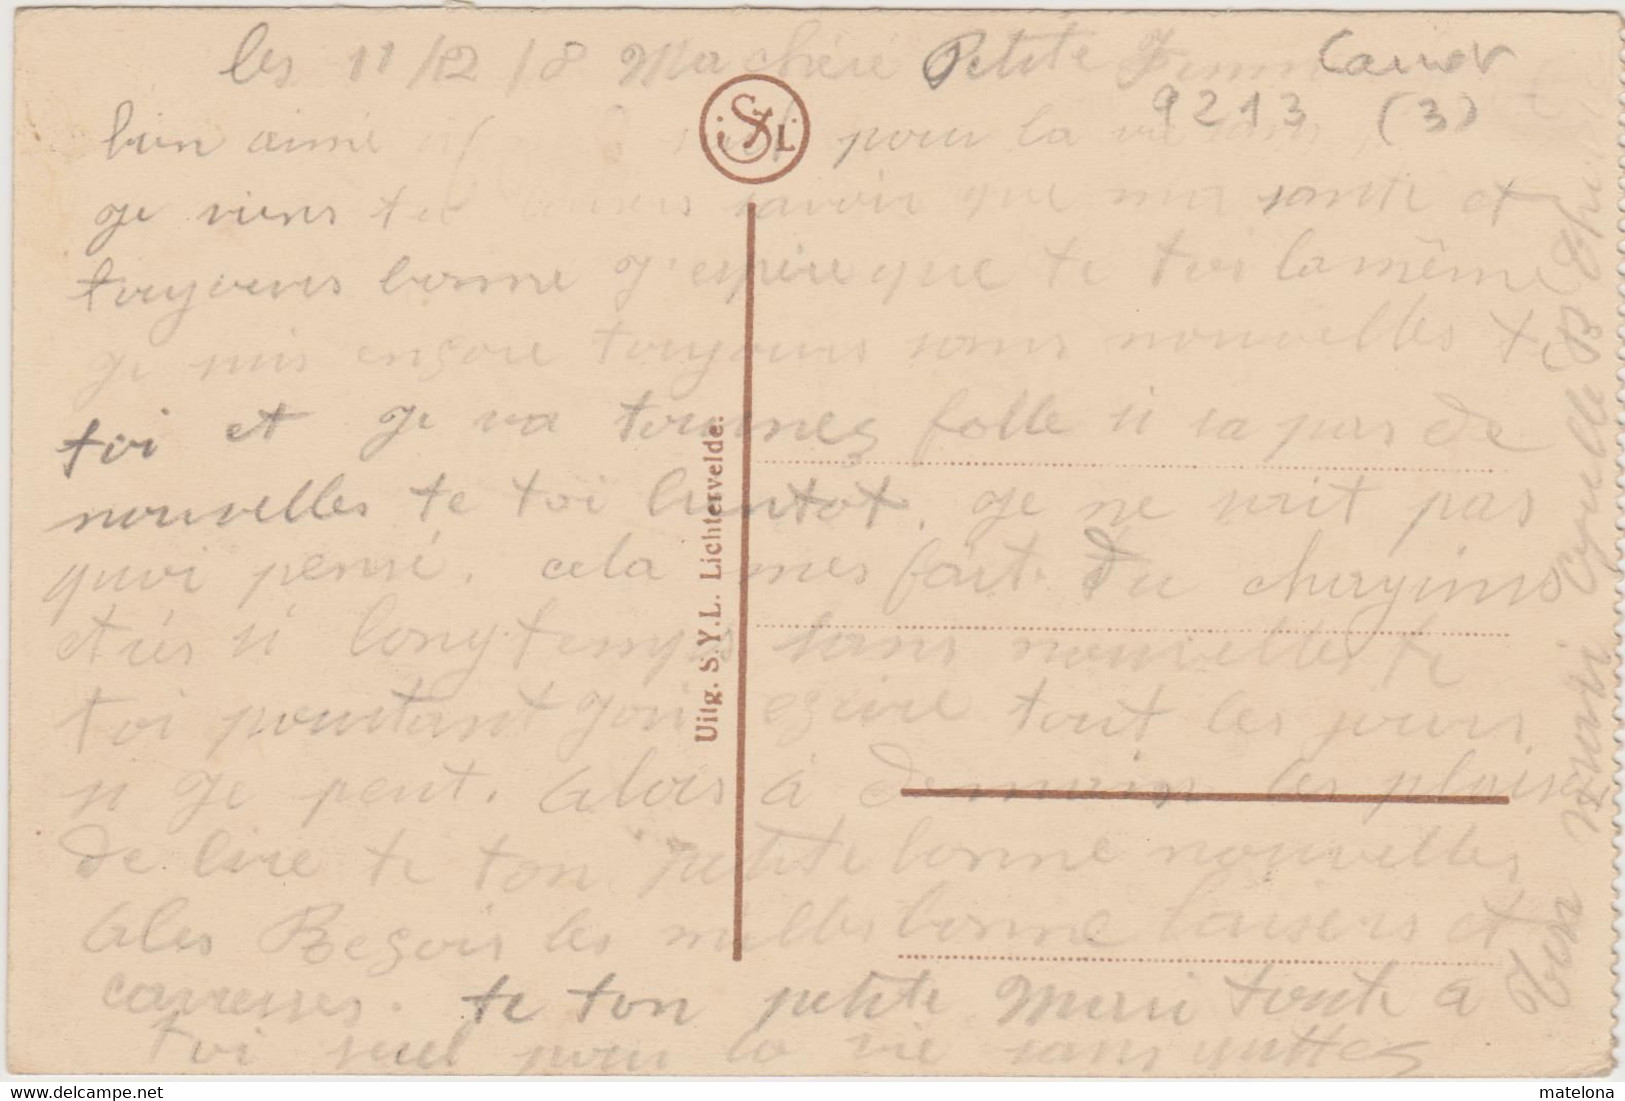 les 11/12/18 Ma chére Petite
Cauer
9213 (3)
bien aimé seul pour la vie sans
SYL
je viens te savoir que ma sante et
toujours bonne J'espère que te toi la même
je suis ençore toujours sans nouvelles te
toi et je va tournes folle si sa pas de
nouvelles te toi bientot. je ne sait pas
quoi pensé. cela mes fait du chagrins
etres si longtemps sans nouvelles te
toi pourtant J'ai egrire tout les jours
si je peut. Alors à demain les plaisir
de lire te ton petite bonne nouvelles
Ales Reçois les milles bonne baisers et
carresses. te ton petite Marie toute a
toi seul pour la vie sans quittes
Ton Mari Cyrille B
Uitg. S.Y.L. Lichtervelde.
matelona